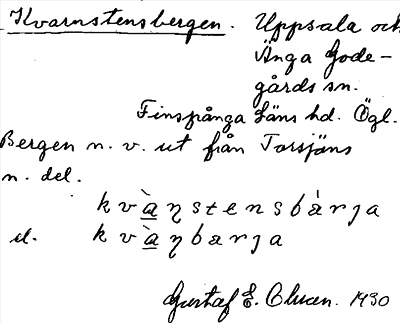 Kvarnstensbergen. Uppsala och
Änga Gode-
gårds sn.
Finspånga Läns hd. Ögl.
Bergen n. v. ut från Torsjöns
n. del.
kvàɳstensbàrja
el. kvàɳbarja
Gustaf E. Olsson. 1930